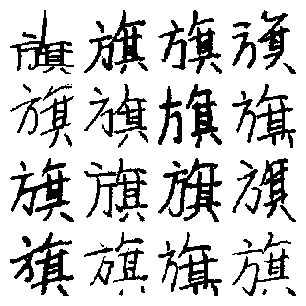 旗旗旗旗
旗旗旗旗
旗旗旗旗
旗旗旗旗